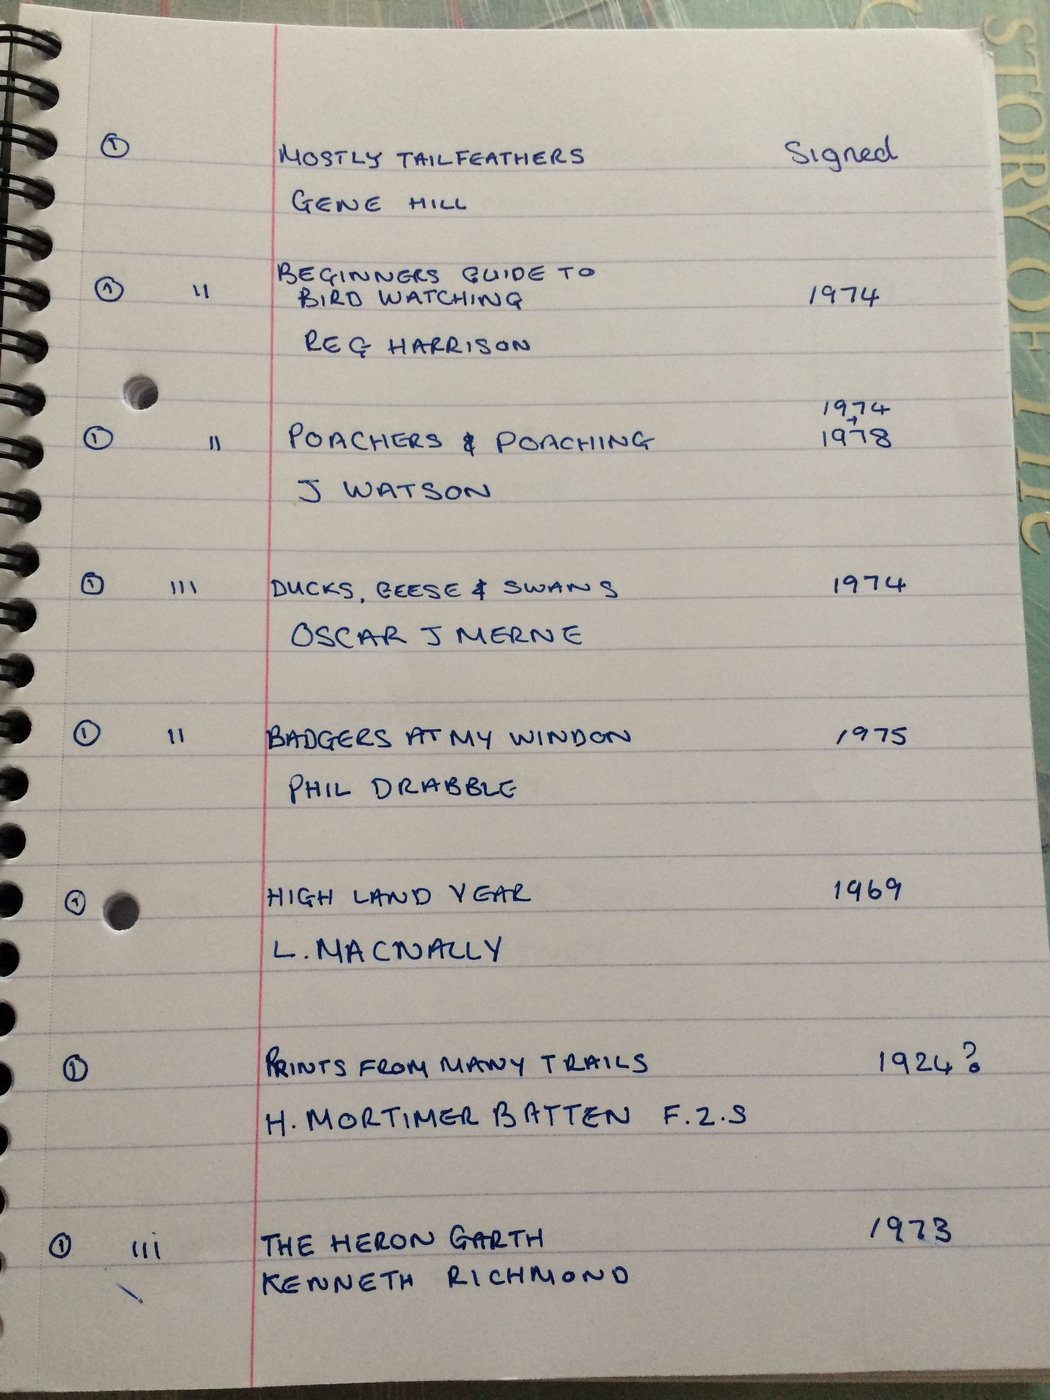 ① MOSTLY TAILFEATHERS Signed
GENE HILL
① 11 BEGINNERS GUIDE TO
BIRD WATCHING 1974
REG HARRISON
1974
① 11 POACHERS & POACHING 1978
J WATSON
① 111 DUCKS, GEESE & SWANS 1974
OSCAR J MERNE
① 11 BADGERS AT MY WINDOW 1975
PHIL DRABBLE
① HIGH LAND YEAR 1969
L. MACNALLY
① PRINTS FROM MANY TRAILS 1924?
H. MORTIMER BATTEN F.Z.S
① 111 THE HERON GARTH 1973
KENNETH RICHMOND
STORY OF